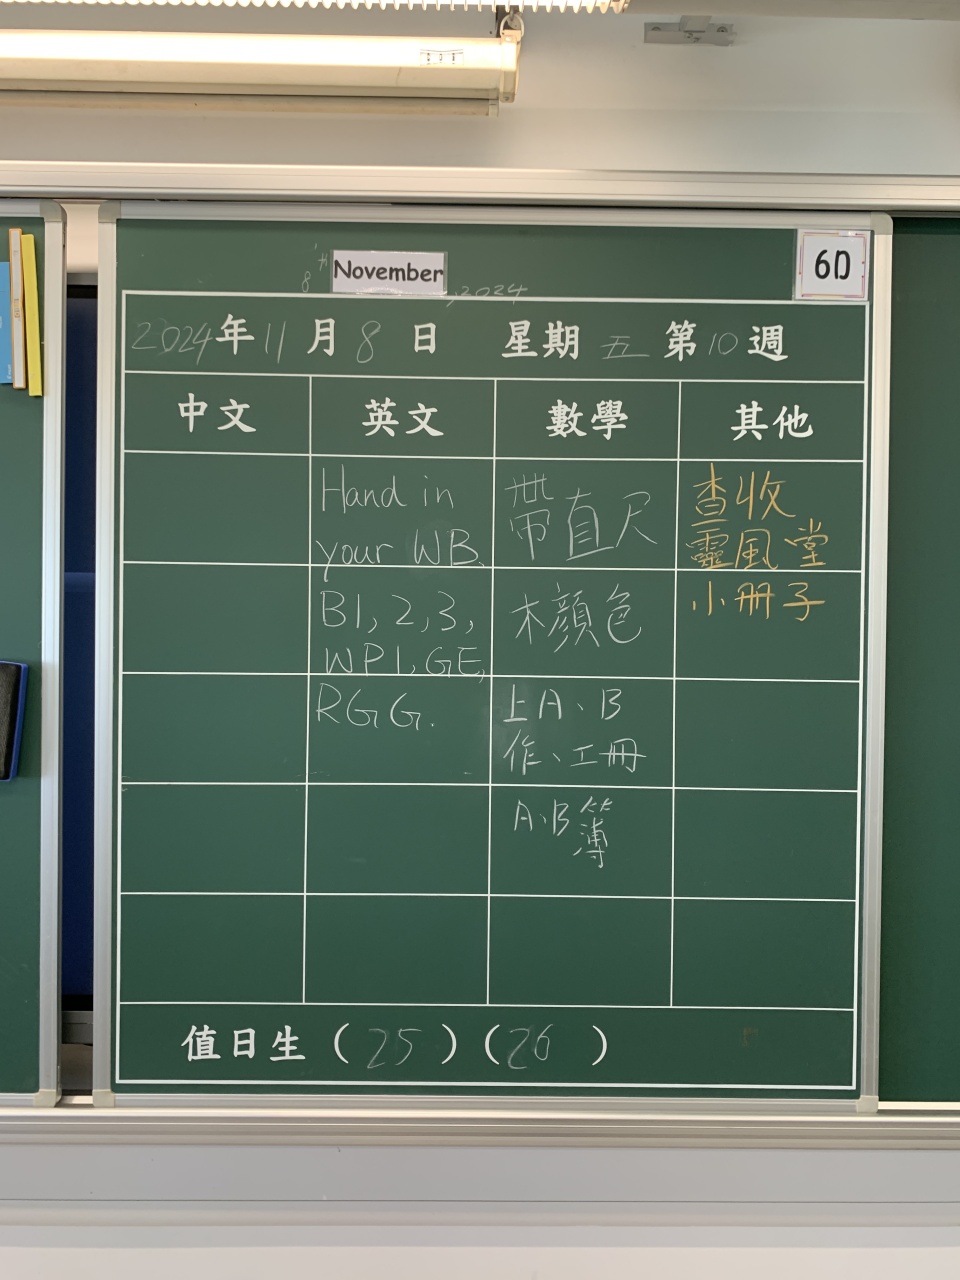 8th November, 2024
6D
2024年11月8日 星期五 第10週
中文 英文 數學 其他
Hand in
your WB.
B1, 2, 3,
WP1, GE,
RGG.
帶直尺
木顏色
上A、B
作、工冊
A、B簿
查收
靈風堂
小冊子
值日生（25）（26）